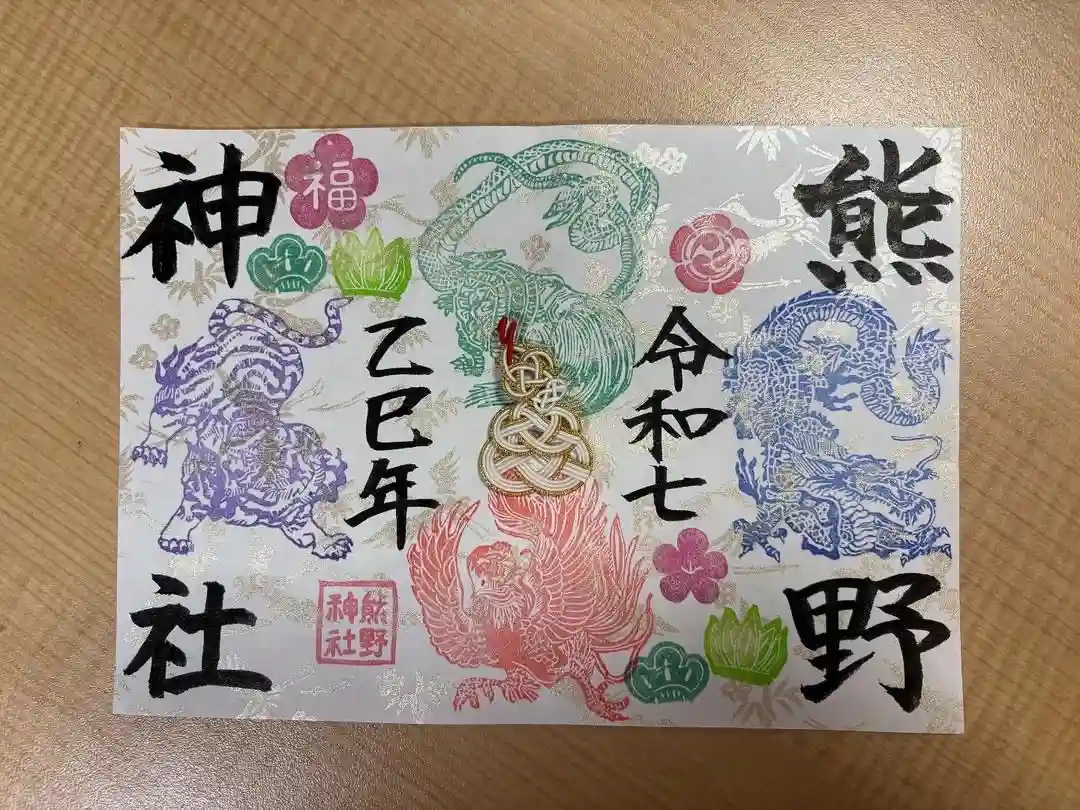 熊野
令和七
乙巳年
神社
福
熊野
神社